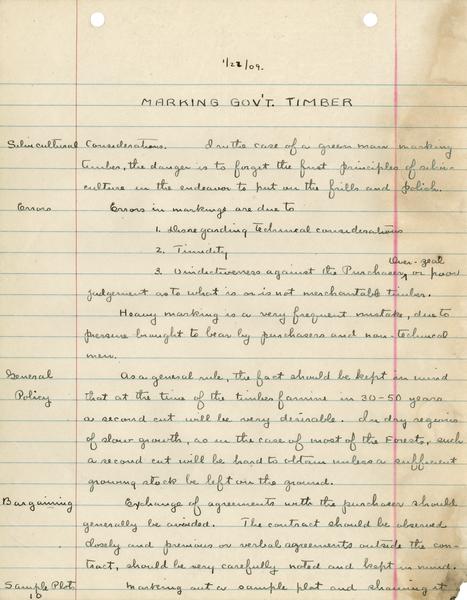 1/22/09.
MARKING GOV'T. TIMBER
Silvicultural Considerations. In the case of a green man marking
timber, the danger is to forget the first principles of silvi-
culture in the endeavor to put on the frills and polish.
Errors Errors in marking are due to
1. Disregarding technical considerations
2. Timidity
Over-zeal
3. Vindictiveness against the Purchaser, or poor
judgement as to what is or is not merchantable timber.
Heavy marking is a very frequent mistake, due to
pressure brought to bear by purchasers and non-technical
men.
General As a general rule, the fact should be kept in mind
Policy that at the time of the timber famine in 30-50 years
a second cut will be very desirable. In dry regions
of slow growth, as in the case of most of the Forests, such
a second cut will be hard to obtain unless a sufficient
growing stock be left on the ground.
Bargaining Exchange of agreements with the purchaser should
generally be avoided. The contract should be observed
closely and previous or verbal agreements outside the con-
tract, should be very carefully noted and kept in mind.
Sample Plots Marking out a sample plot and showing it
10